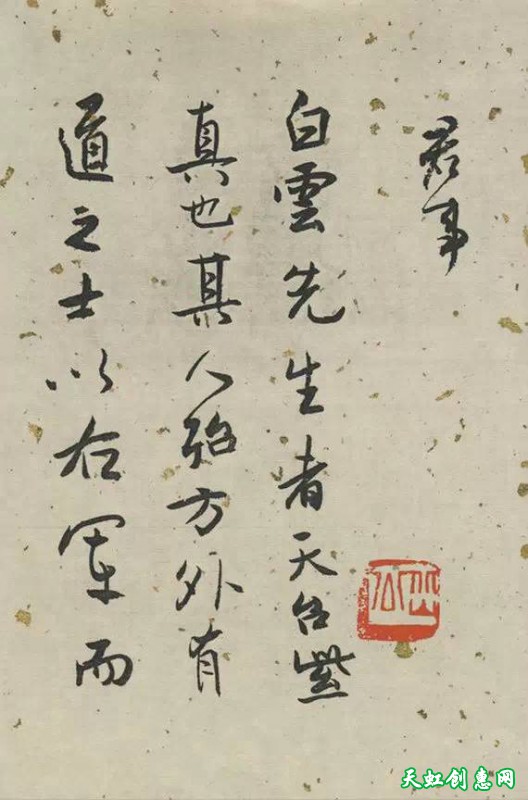 事
白雲先生者天台紫
真也其人殆方外有
道之士以右軍而
天虹创惠网